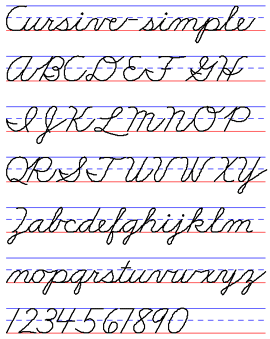 Cursive simple
ABCDEF GH
IJKLMNOP
QRSTUVWXY
Zabcdefghijklm
nopqrstuvwxyz
1234567890